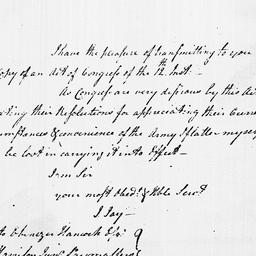 I have the pleasure of transmitting to you
Copy of an Act of Congress of the 12th Inst. —
As Congress are very desirous by this
their Resolutions for appreciating their
& convenience of the Army I flatter myself
be lost in carrying it into Effect —
I am Sir
your most Obedt. & Hble Servt
J Jay —
to Ebenezer Hancock Esqr